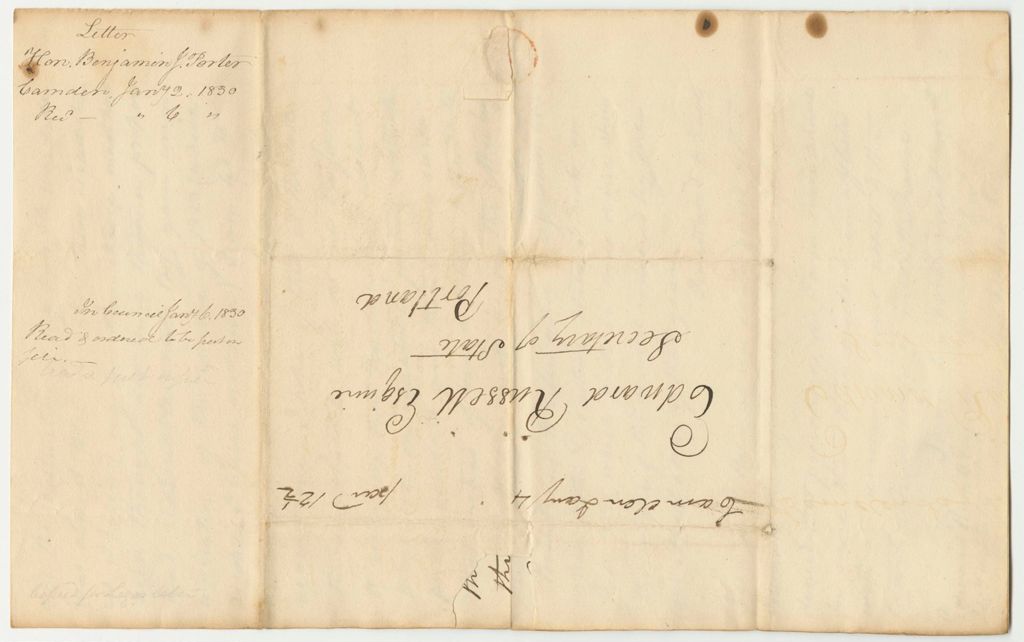 Letter
Hon. Benjamin J. Porter
Camden, Jany 2. 1830
Recd — " 6 "
In Council Jany 6. 1830
Read & ordered to be put on
file. —
Camden Jany 4
paid 12½
Edward Russell Esquire
Secretary of State
Portland